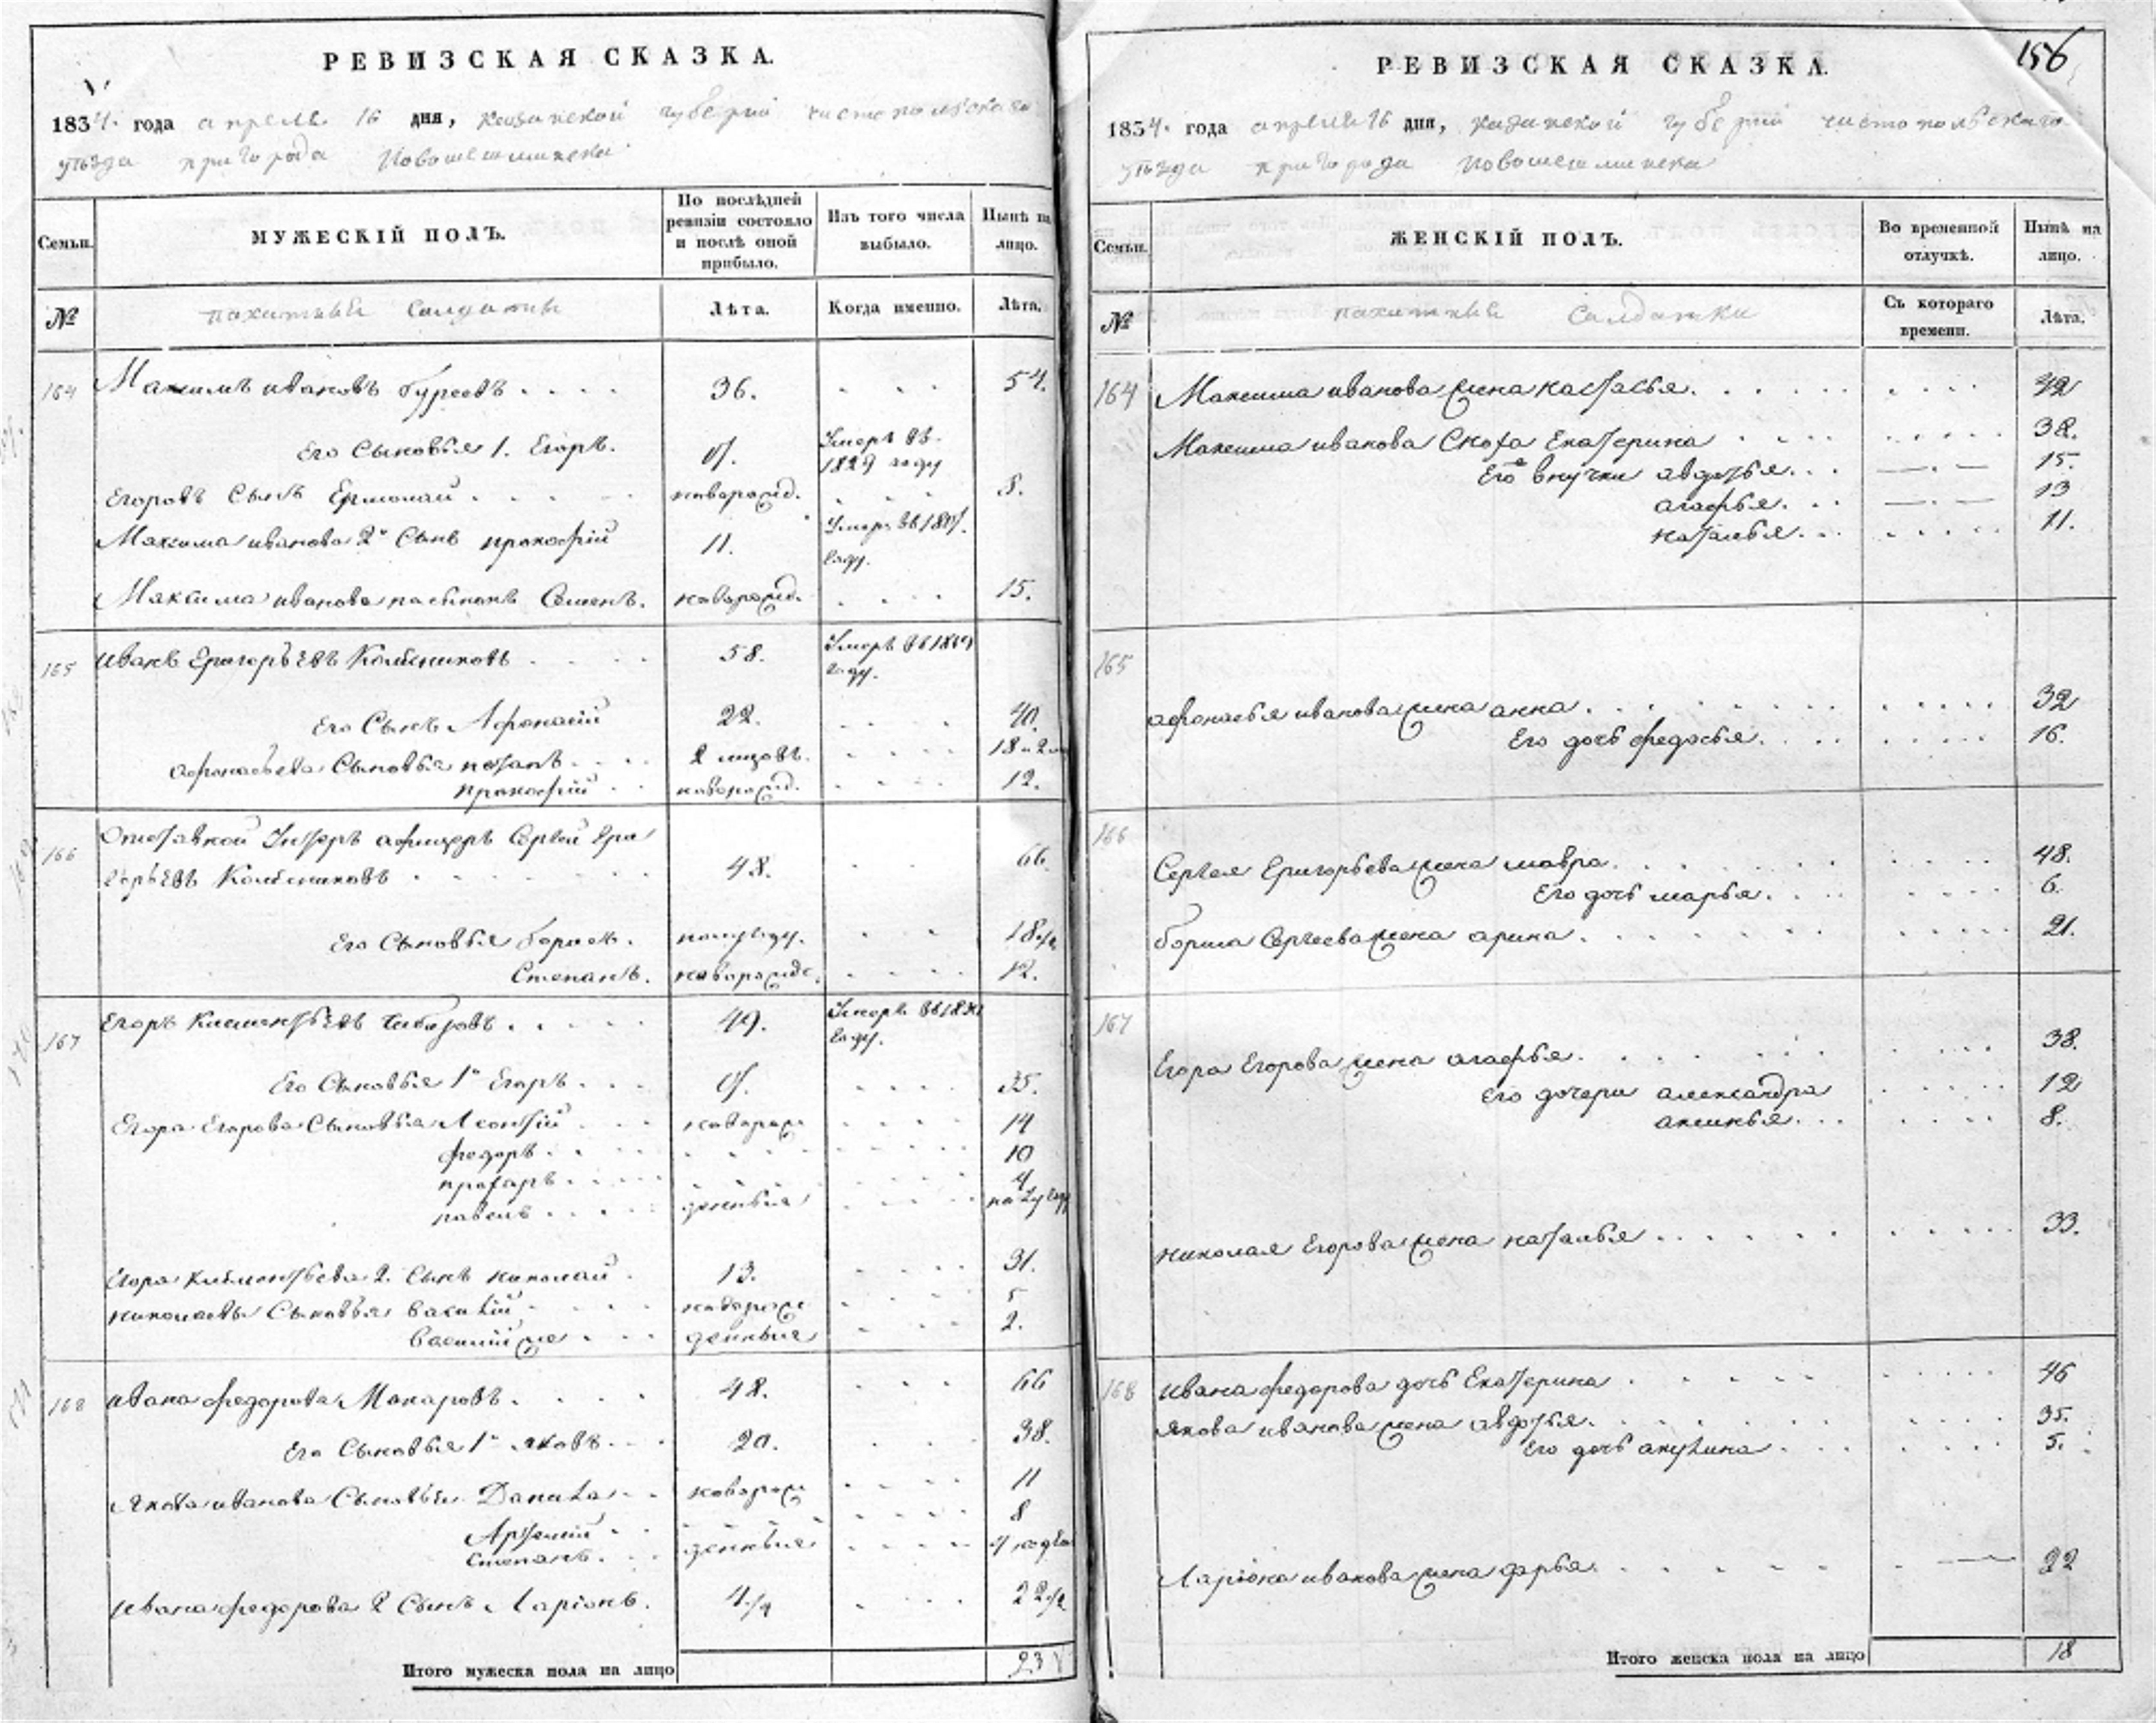 РЕВИЗСКАЯ СКАЗКА.
1834. года апреля 16 дня, казанской губернии чистопольскаго
уѣзда пригорода Новошешминска
Семьи.
МУЖЕСКІЙ ПОЛЪ.
По послѣдней ревизіи состояло и послѣ оной прибыло.
Изъ того числа выбыло.
Нынѣ на лицо.
№
пахатные Салдаты
Лѣта.
Когда именно.
Лѣта.
164 Максимъ ивановъ 36. 54.
Его Сыновья 1. Егоръ. Умеръ въ 1829 году
Егоровъ Сынъ Ермолай новорожд. 8.
Максима иванова 2й Сынъ прокофій 11. Умеръ въ году.
Максима иванова пасынокъ Семенъ. новорожд. 15.
165 иванъ Григорьевъ Колесниковъ 58. Умеръ въ году.
Его Сынъ Афонасій 22. 40.
афонасьева Сыновья потапъ 18
прокофій новорожд. 12.
166 Отставной Унтеръ афицеръ Сергей Гри
горьевъ Колесниковъ 48. 66.
Его Сыновья борисъ. полугоду.
Степанъ. новорожде. 12.
167 Егоръ Клементьевъ 49. Умеръ въ году.
Его Сыновья 1й Егоръ 35.
Егора Егорова Сыновья Леонтій новорож 14
федоръ 10
4
павелъ
Егора Клементьева 2. Сынъ николай 13. 31.
николаевы Сыновья василій новорож 5
василій же 2.
168 ивана федорова Макаровъ 48. 66
Его Сыновья 1й яковъ 20. 38.
Якова иванова Сыновья Данила новорож 11
Артемій 8
степанъ.
ивана федорова 2 Сынъ Ларіонъ. 22
Итого мужеска пола на лицо 23
156
РЕВИЗСКАЯ СКАЗКА.
1834. года апреля 16 дня, казанской губернии чистопольскаго
уѣзда пригорода Новошешминска
Семьи.
ЖЕНСКІЙ ПОЛЪ.
Во временной отлучкѣ.
Нынѣ на лицо.
№
пахатные Салдатки
Съ котораго времени.
Лѣта.
164 Максима иванова жена настасья.
Максима иванова Сноха Екатерина 38.
Его внучки авдотья. 15.
агафья. 13
наталья. 11.
165
афонасья иванова жена анна. 32
Его дочь федосья. 16.
166
Сергея Григорьева жена мавра. 48.
Его дочь марья. 6.
бориса Сергеева жена арина. 21.
167
Егора Егорова жена агафья. 38.
Его дочери александра 12
аксинья. 8.
николая Егорова жена наталья 33.
168 ивана федорова дочь Екатерина 46
якова иванова жена авдотья. 35.
Его дочь акулина 5.
Ларіона иванова жена дарья. 22
Итого женска пола на лицо 18